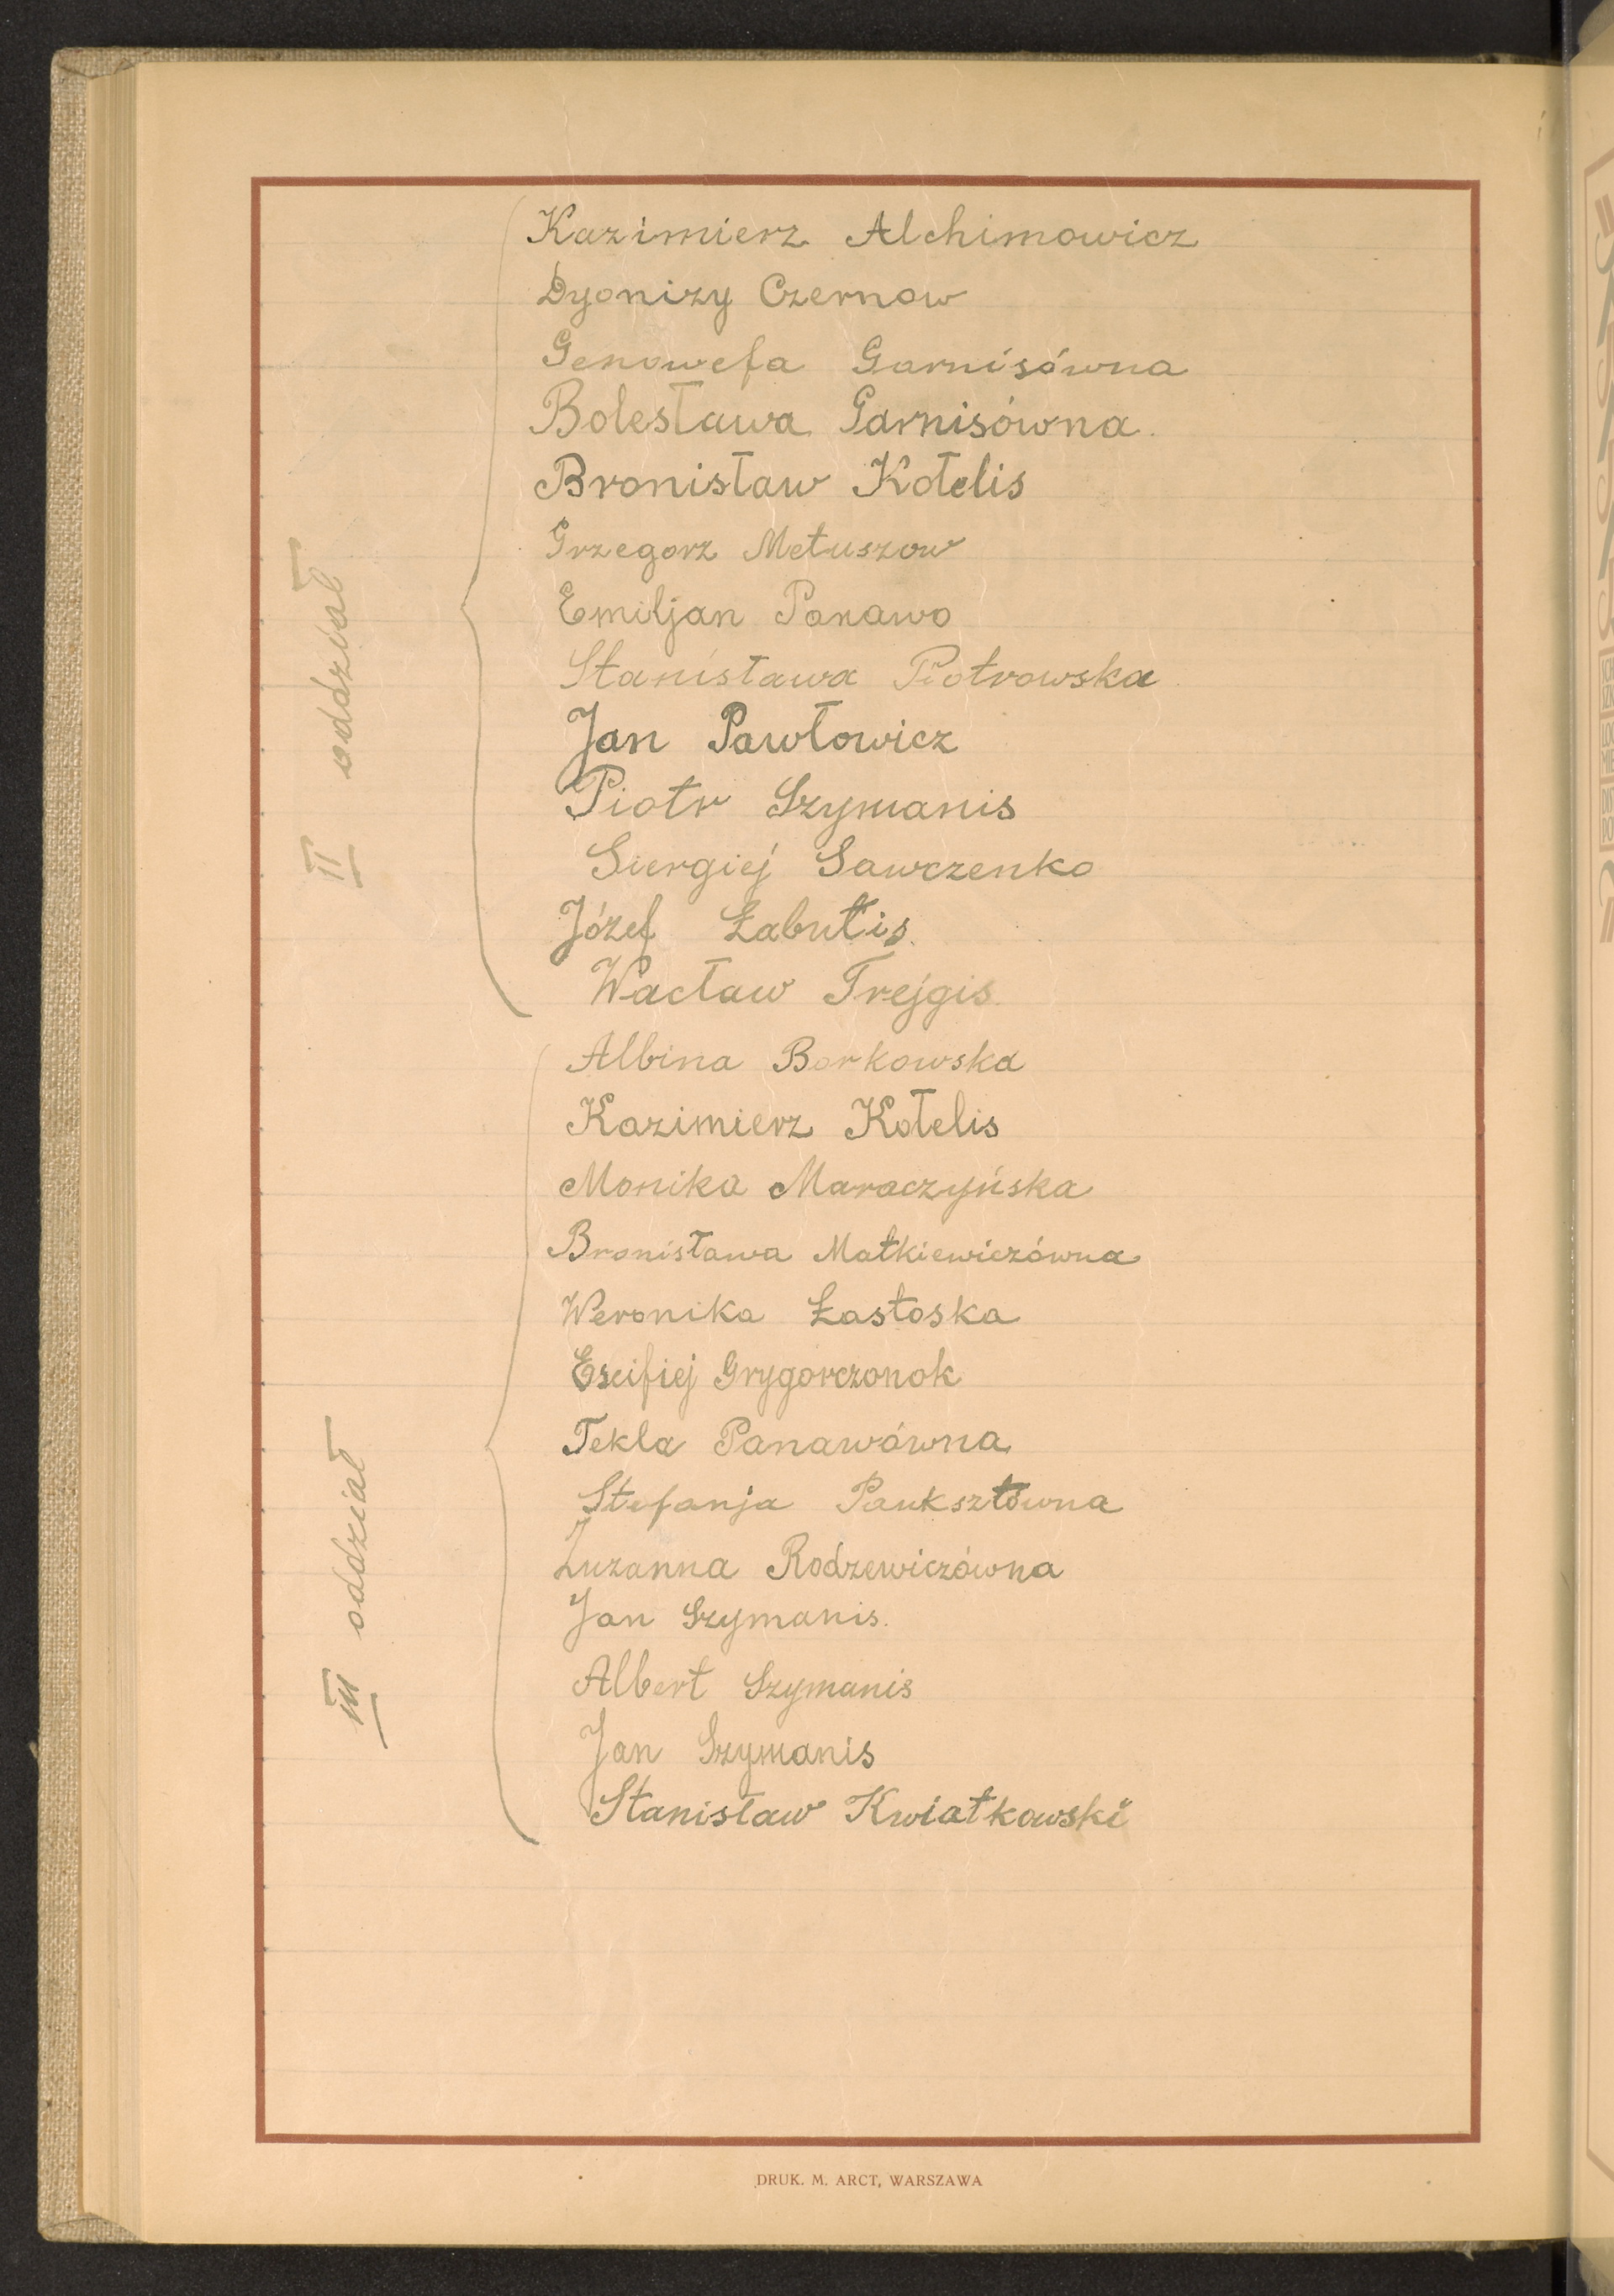 II oddział
Kazimierz Alchimowicz
Dyonizy Czernow
Genowefa Garnisówna
Bolesława Garnisówna.
Bronisław Kotelis
Grzegorz Metuszow
Emiljan Panawo
Stanisława Piotrowska
Jan Pawłowicz
Piotr Szymanis
Siergiej Sawczenko
Józef Łabutis.
Wacław Trejgis.
III oddział
Albina Borkowska
Kazimierz Kotelis
Monika Maraczyńska
Bronisława Matkiewiczówna
Weronika Łastoska
Escifiej Grygorczonok
Tekla Panawówna
Stefanja Pauksztówna
Zuzanna Rodzewiczówna
Jan Szymanis.
Albert Szymanis
Jan Szymanis
Stanisław Kwiatkowski
DRUK. M. ARCT, WARSZAWA